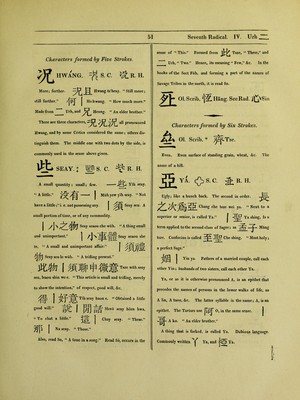 51
Seventh Radical. IV. Urh 二
Characters formed by Five Strokes.
况 HWANG. S. C. R. H.
More; further. 况且 Hwang tseay. "Still more;
still farther." 何 | Ho hwang. "How much more."
Made from 二 Urh, and 兄 Heung. "An elder brother."
There are three characters, 况況 all pronounced
Hwang, and by some Critics considered the same; others distinguish
them. The middle one with two dots by the side, is
commonly used in the sense above given.
些 SEAY. S. C. R. H.
A small quantity; small; few. 一些 Yih seay.
"A little." 没有一 | Muh yew yih seay. "Not
have a little;" i.e. not possessing any. | 須 Seay seu. A
small portion of time, or of any commodity.
| 小之物 Seay seaou che wuh. "A thing small
and unimportant." | 小事體 Seay seaou sze
te, "A small and unimportant affair." | 須禮
物 Seay seu le wuh. "A trifling present."
此物 | 須聊申微意 Tsze wuh seay
seu, leaou shin wei e. "This article is small and trifling, merely
to show the intention," of respect, good will, &c.
得 | 好意 Tih seay haou e. "Obtained a little
good will." 說 | 閒話 Shwo seay heen hwa.
"To chat a little." 這 | Chay seay. "These."
那 | Na seay. "Those."
Also, read So, "A tone in a song." Read Se, occurs in the
sense of "This." Formed from 此 Tsze, "These;" and
二 Urh, "Two." Hence, its meaning "Few," &c. In the
books of the Sect Fuh, and forming a part of the names of
Savage Tribes in the earth, it is read So.
Ol. Scrib. 恆 Hing. See Rad. 心 Sin
Characters formed by Six Strokes.
Ol. Scrib. 齊 Tse.
Even. Even surface of standing grain, wheat, &c. The
name of a hill.
亞 YÁ. S. C. R. H.
Ugly; like a hunch back. The second in order. 長
之次爲亞 Chang che tsze wei ya. "Next to a
superior or senior, is called Ya." | 聖 Ya shing. Is a
term applied to the second class of Sages; to 孟子 Mäng
tsze. Confucius is called 至聖 Che shing. "Most holy;
a perfect Sage."
姻 | Yin ya. Fathers of a married couple, call each
other Yin; husbands of two sisters, call each other Ya.
Ya, or as it is otherwise pronounced A, is an epithet that
precedes the names of persons in the lower walks of life, as
A fuh, A tsëen, &c. The latter syllable is the name; A, is an
epithet. The Tartars use 阿 O, in the same sense. |
哥 A ko. "An elder brother."
A thing that is forked, is called Ya. Dubious language
Commonly written 丫 Ya, and 椏 Ya.